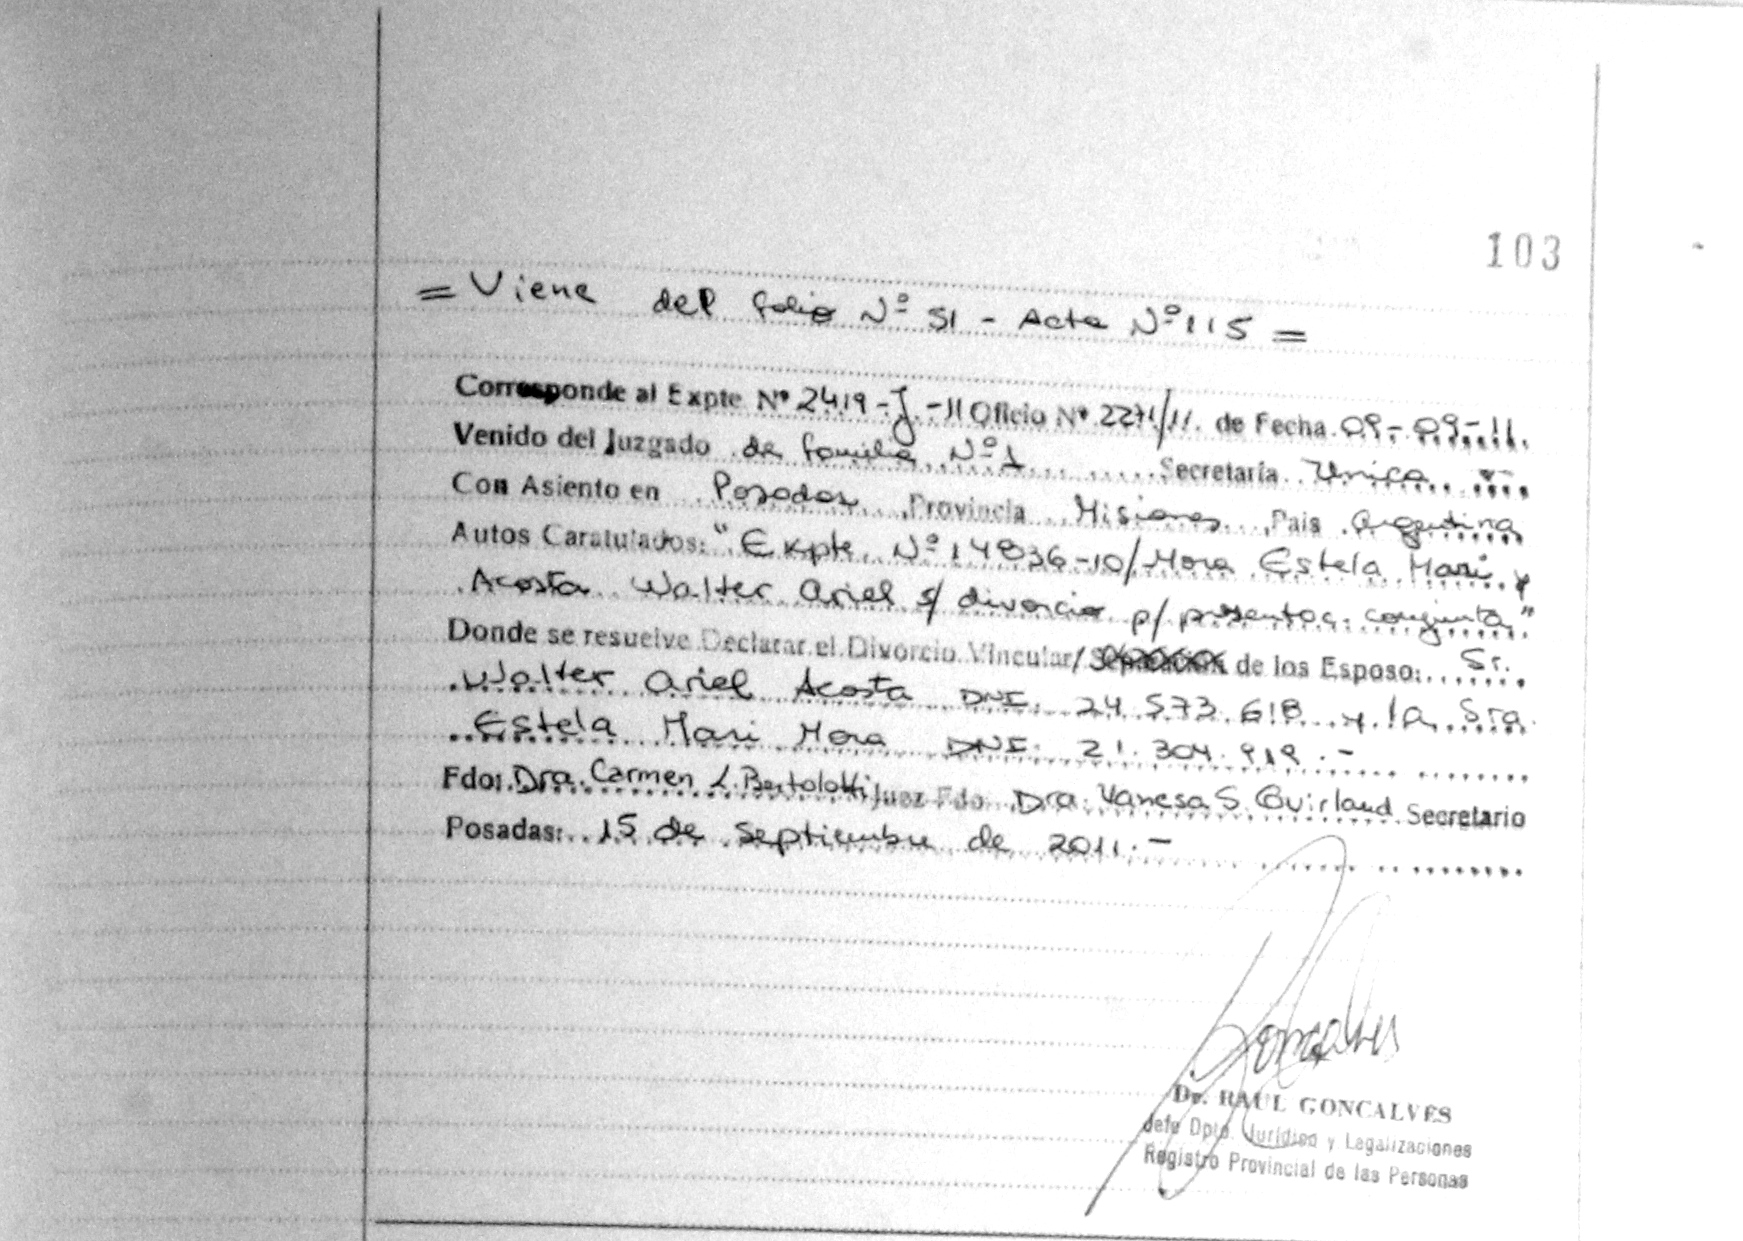 103
= Viene del folio Nº 51 - Acta Nº 115 =
Corresponde al Expte Nº 2419-J-11 Oficio Nº 2271/11. de Fecha 09-09-11.
Venido del Juzgado de familia Nº 1 Secretaría Unica
Con Asiento en Posadas Provincia Misiones País Argentina
Autos Caratulados: "Expte. Nº 14836-10/Mora Estela Mari y
Acosta Walter Ariel s/ divorcio p/ presentac. conjunta"
Donde se resuelve Declarar el Divorcio Vincular/ Separación de los Esposo: Sr.
Walter Ariel Acosta DNI. 24.573.618 y la Sra.
Estela Mari Mora DNI. 21.304.919.-
Fdo: Dra. Carmen L. Bertolotti Juez Fdo. Dra. Vanesa S. Guirland Secretario
Posadas: 15 de septiembre de 2011.-
Goncalves
Dr. RAUL GONCALVES
Jefe Dpto. Jurídico y Legalizaciones
Registro Provincial de las Personas